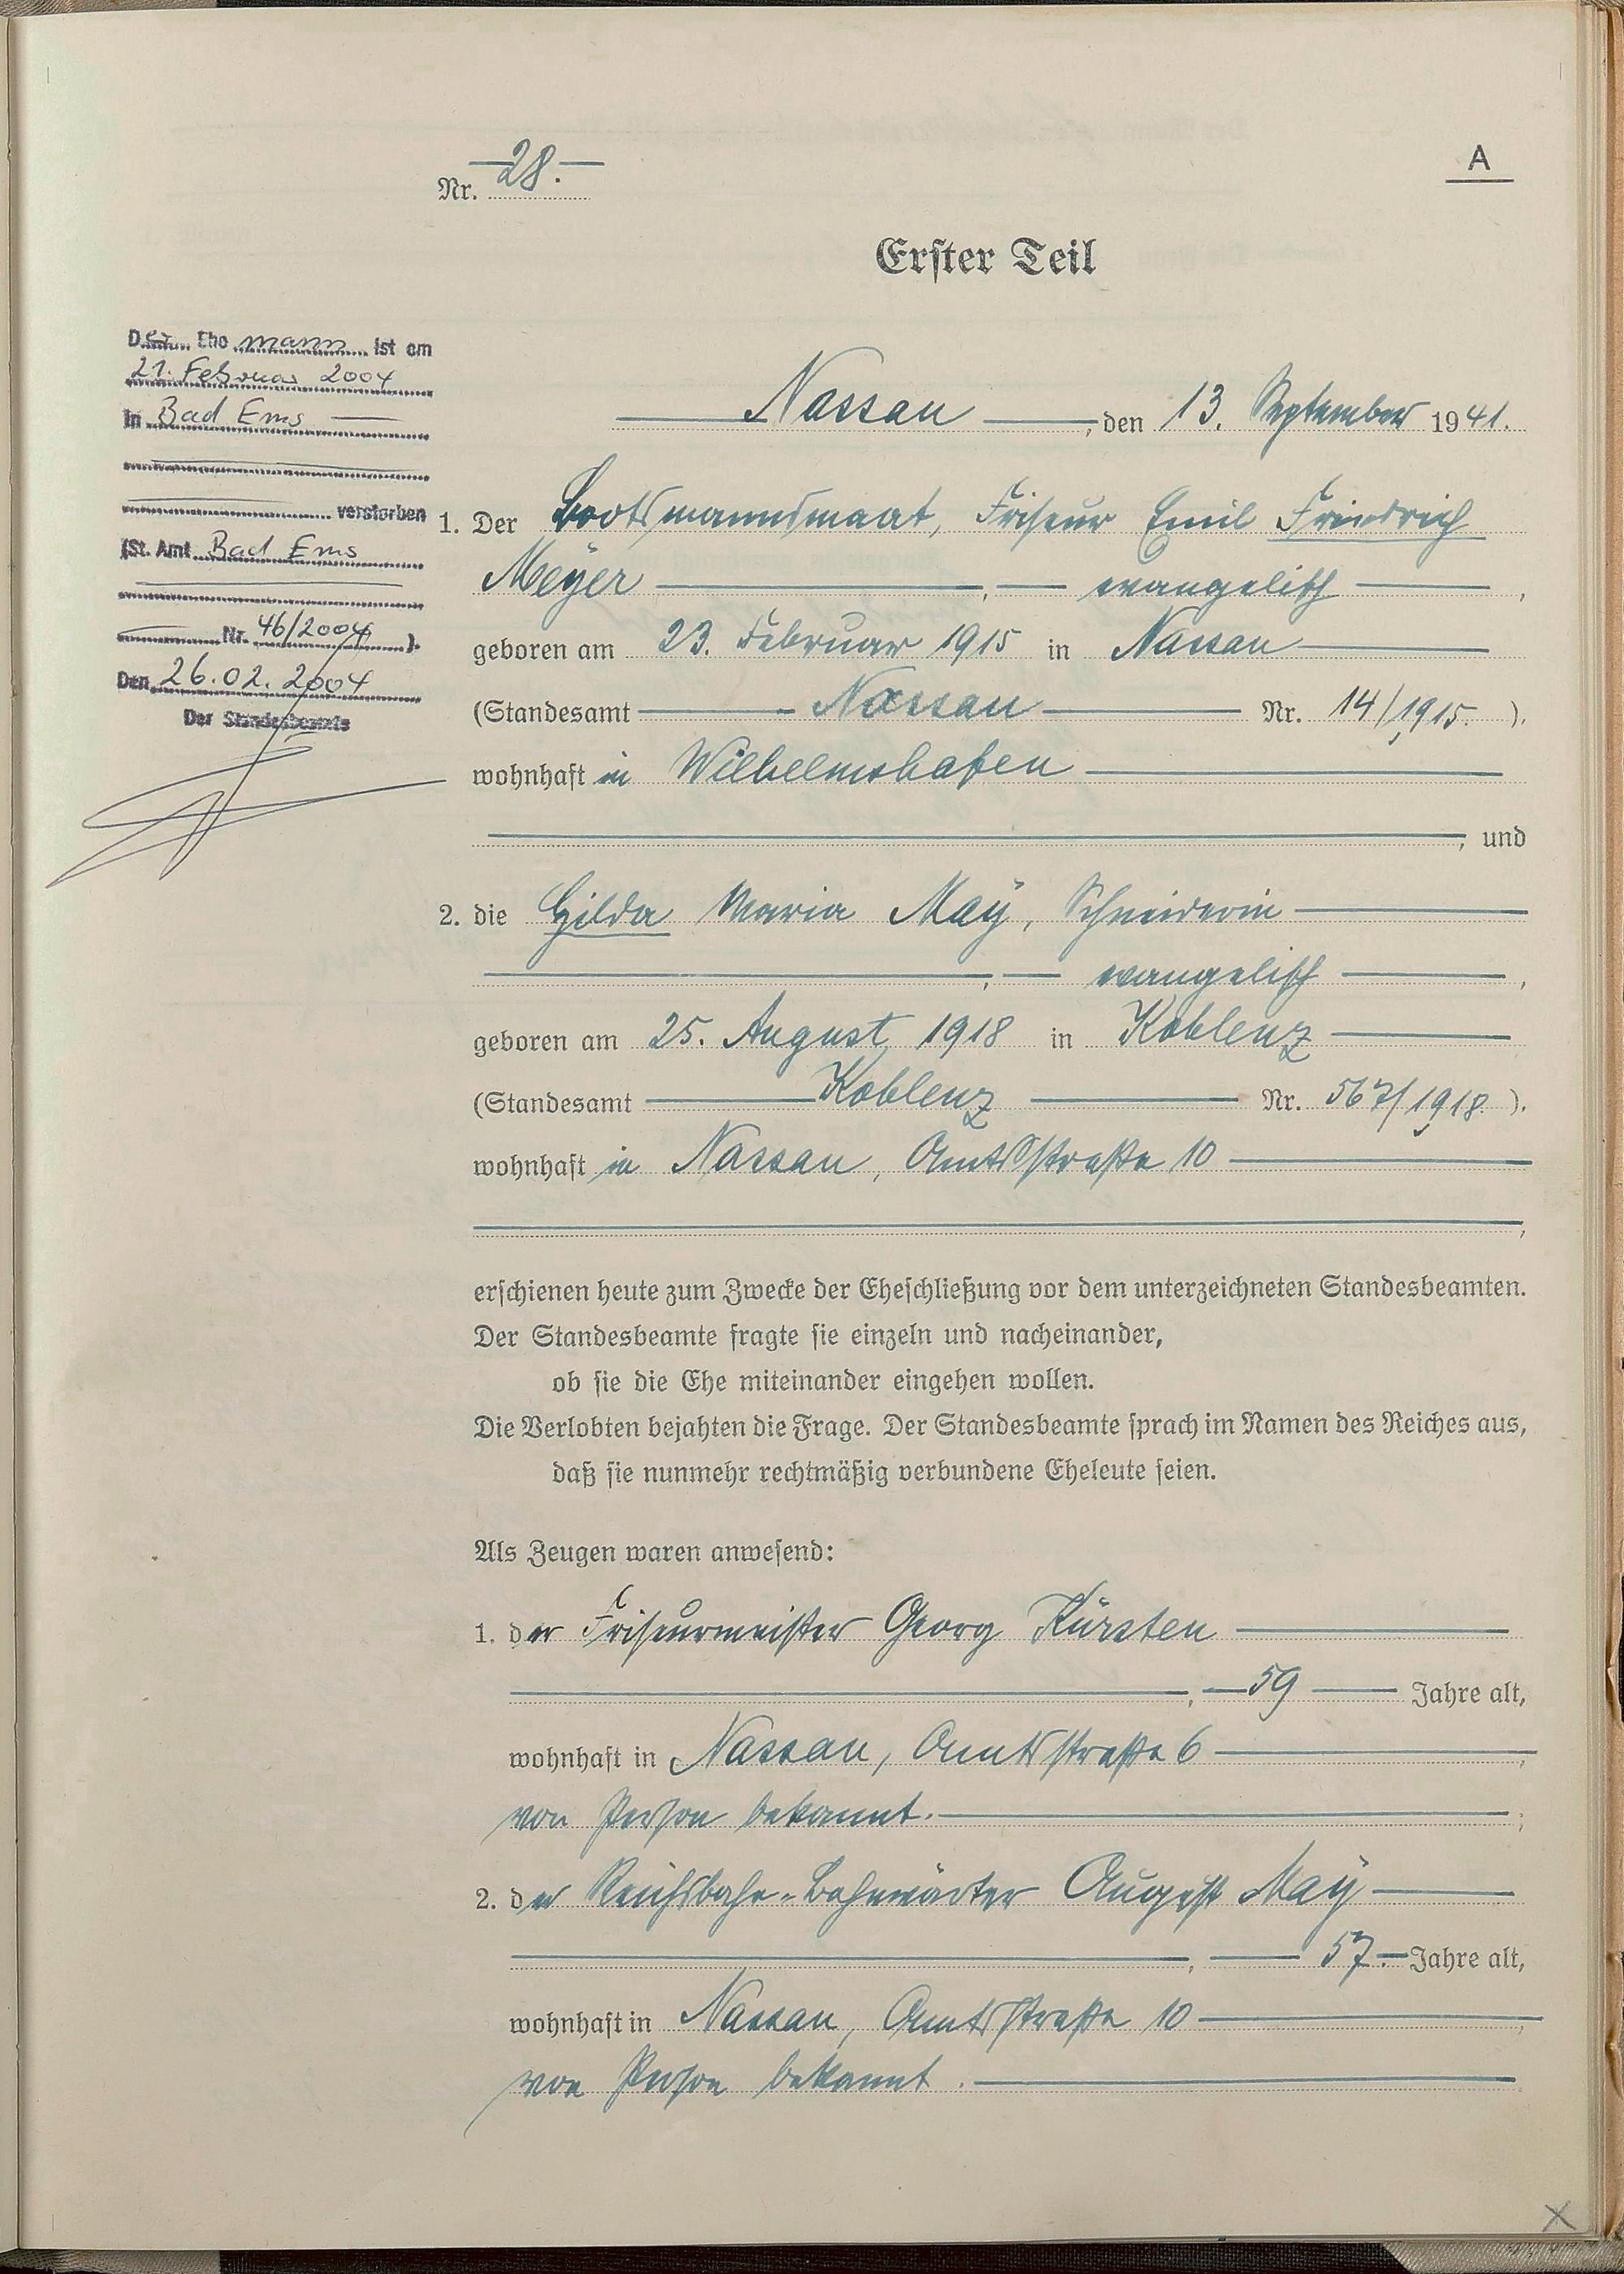 Nr. 28.
A
Erster Teil
Der Ehemann ist am
21. Februar 2004
in Bad Ems
verstorben
(St. Amt Bad Ems
Nr. 46/2004 ).
Den 26.02.2004
Der Standesbeamte
Nassau, den 13. September 1941.
1. Der Bootsmannsmaat, Friseur Emil Friedrich
Meÿer, evangelisch,
geboren am 23. Februar 1915 in Nassau
(Standesamt Nassau Nr. 14/1915. ),
wohnhaft in Wilhelmshafen
, und
2. die Hilda Maria Maÿ, Schneiderin
, evangelisch,
geboren am 25. August 1918 in Koblenz
(Standesamt Koblenz Nr. 567/1918 ).
wohnhaft in Nassau, Amtsstraße 10
,
erschienen heute zum Zwecke der Eheschließung vor dem unterzeichneten Standesbeamten.
Der Standesbeamte fragte sie einzeln und nacheinander,
ob sie die Ehe miteinander eingehen wollen.
Die Verlobten bejahten die Frage. Der Standesbeamte sprach im Namen des Reiches aus,
daß sie nunmehr rechtmäßig verbundene Eheleute seien.
Als Zeugen waren anwesend:
1. der Friseurmeister Georg Kürsten
, 59 Jahre alt,
wohnhaft in Nassau, Amtsstraße 6,
von Person bekannt.;
2. der Reichsbahn-Bahnwärter August Maÿ
, 57. Jahre alt,
wohnhaft in Nassau, Amtsstraße 10,
von Person bekannt.